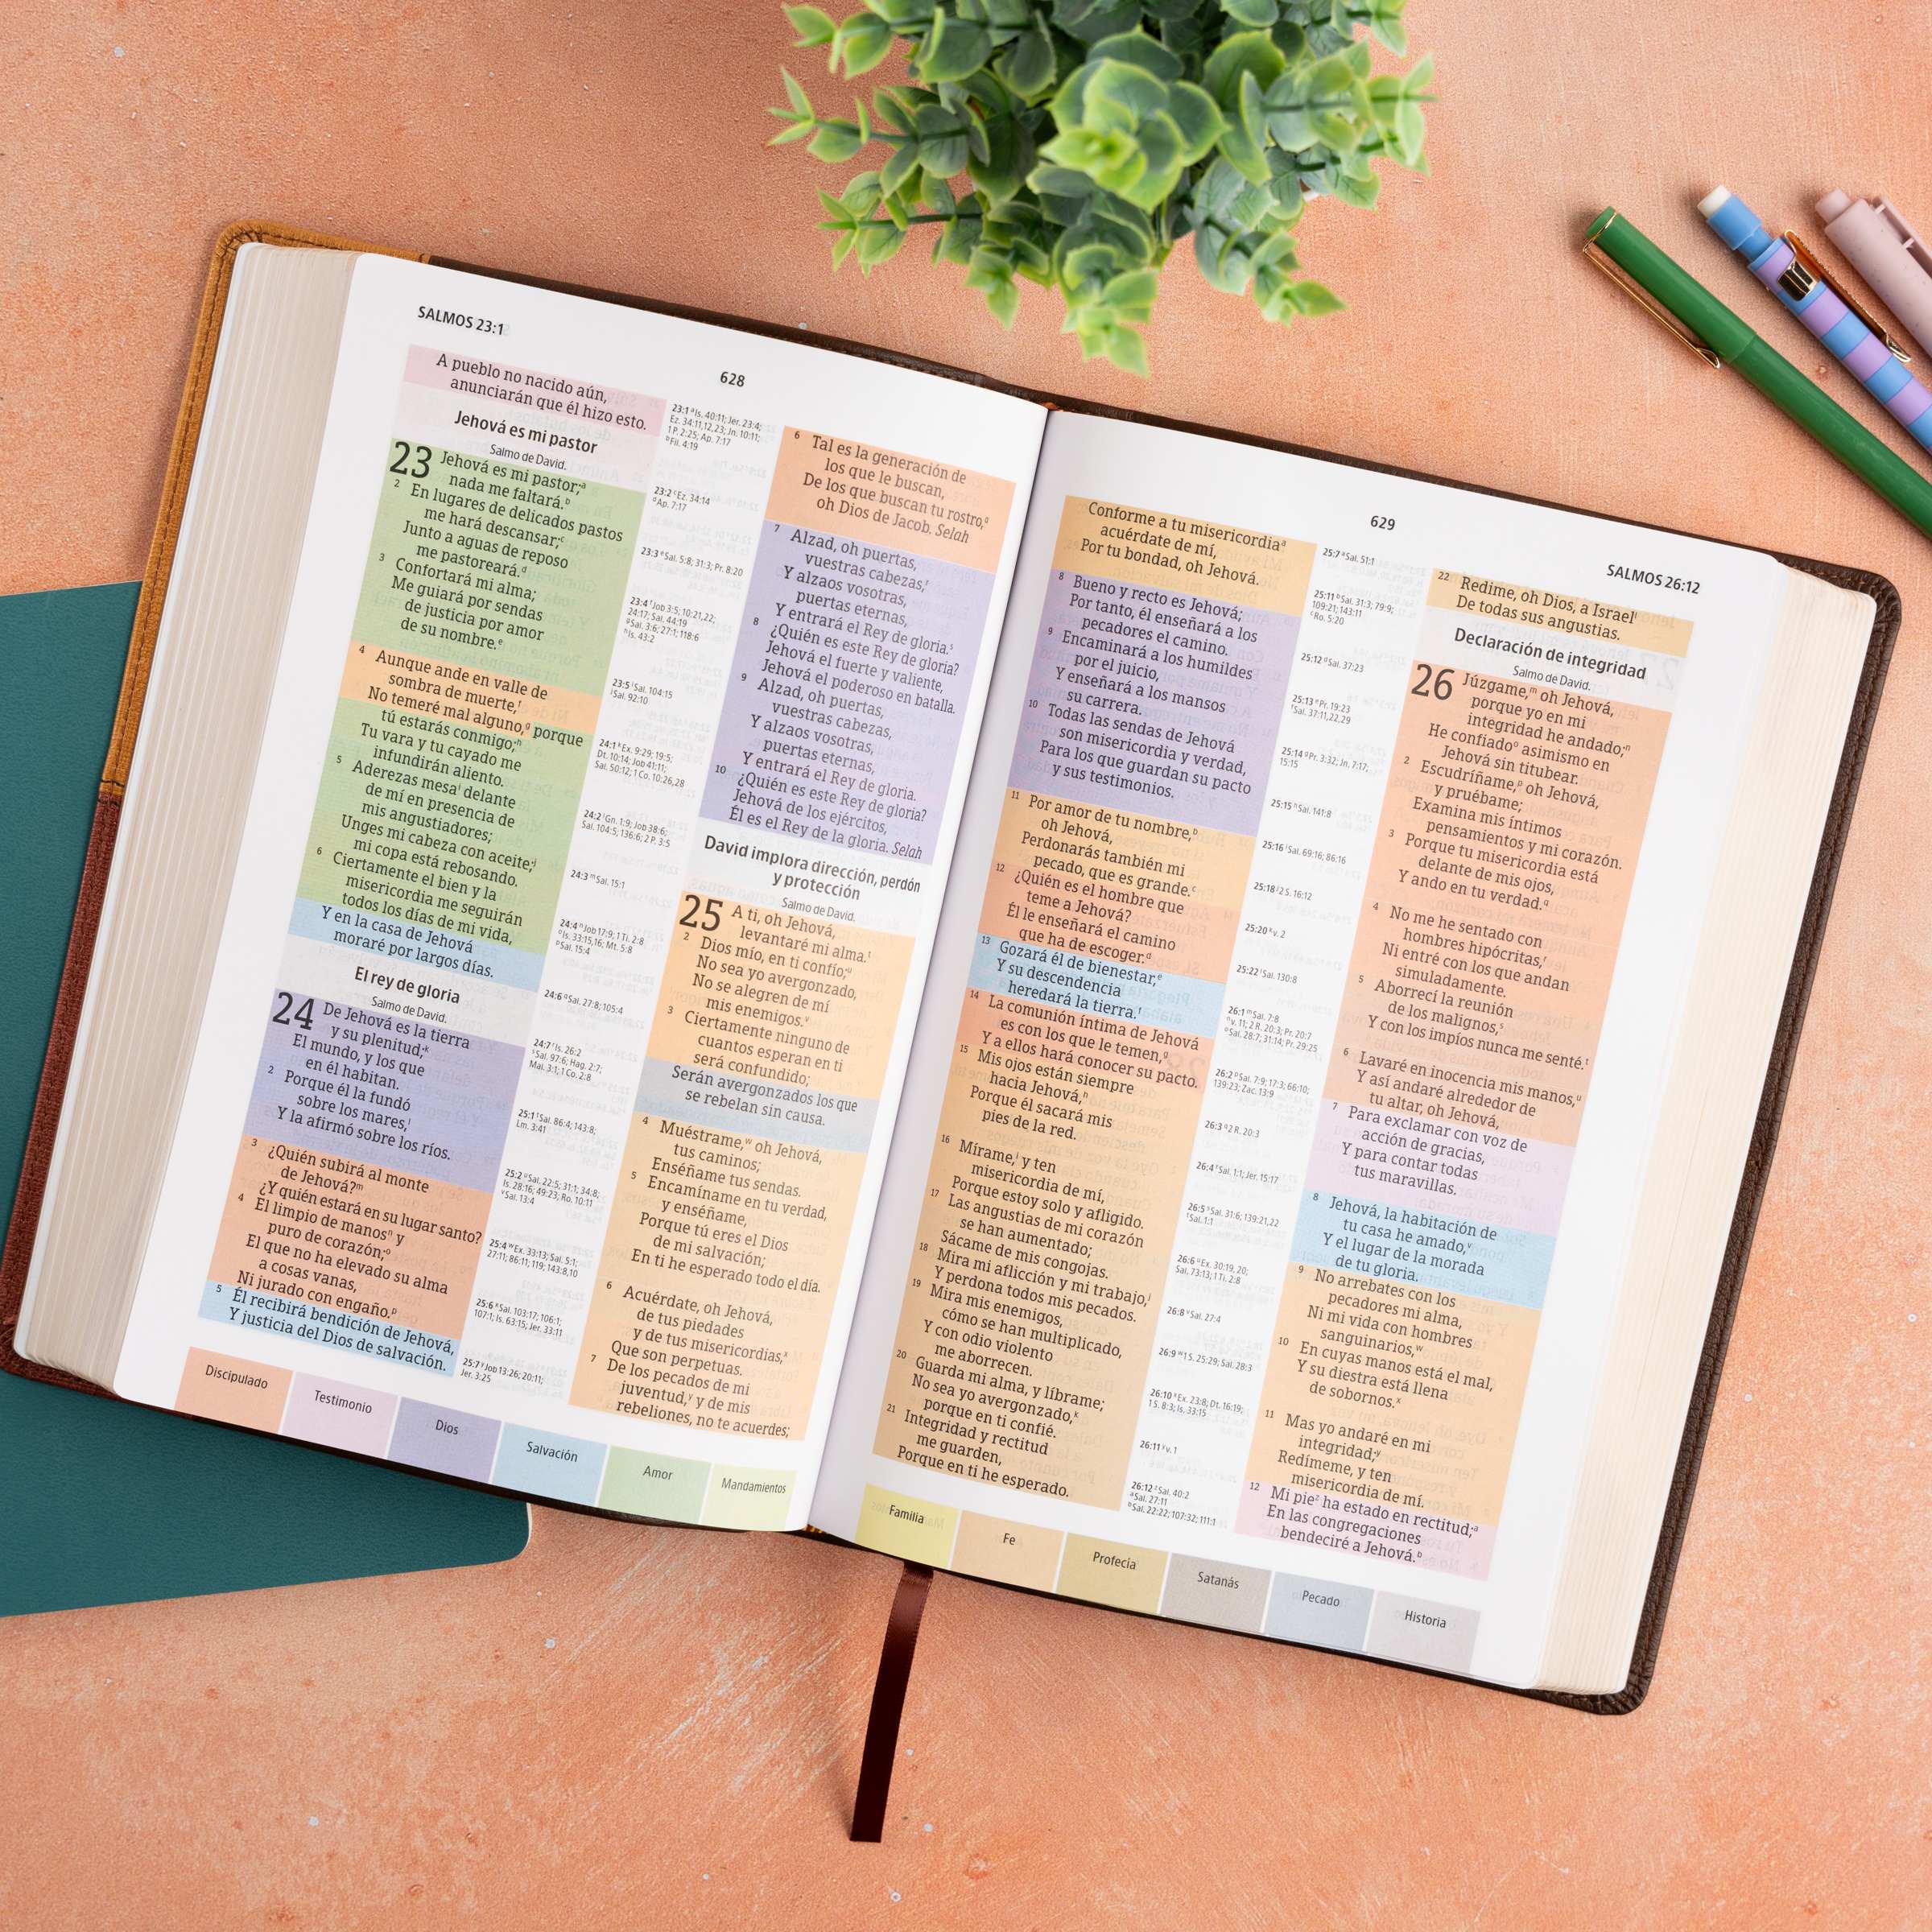 SALMOS 23:1
628
A pueblo no nacido aún,
anunciarán que él hizo esto.
Jehová es mi pastor
Salmo de David.
23 Jehová es mi pastor;a
nada me faltará.b
2 En lugares de delicados pastos
me hará descansar;c
Junto a aguas de reposo
me pastoreará.d
3 Confortará mi alma;
Me guiará por sendas
de justicia por amor
de su nombre.e
4 Aunque ande en valle de
sombra de muerte,f
No temeré mal alguno,g porque
tú estarás conmigo;h
Tu vara y tu cayado me
infundirán aliento.
5 Aderezas mesai delante
de mí en presencia de
mis angustiadores;
Unges mi cabeza con aceite;j
mi copa está rebosando.
6 Ciertamente el bien y la
misericordia me seguirán
todos los días de mi vida,
Y en la casa de Jehová
moraré por largos días.
El rey de gloria
Salmo de David.
24 De Jehová es la tierra
y su plenitud;k
El mundo, y los que
en él habitan.
2 Porque él la fundó
sobre los mares,l
Y la afirmó sobre los ríos.
3 ¿Quién subirá al monte
de Jehová?m
¿Y quién estará en su lugar santo?
4 El limpio de manosn y
puro de corazón;o
El que no ha elevado su alma
a cosas vanas,
Ni jurado con engaño.p
5 Él recibirá bendición de Jehová,
Y justicia del Dios de salvación.
23:1 a Is. 40:11; Jer. 23:4;
Ez. 34:11,12,23; Jn. 10:11;
1 P. 2:25; Ap. 7:17
b Fil. 4:19
23:2 c Ez. 34:14
d Ap. 7:17
23:3 e Sal. 5:8; 31:3; Pr. 8:20
23:4 f Job 3:5; 10:21,22;
24:17; Sal. 44:19
g Sal. 3:6; 27:1; 118:6
h Is. 43:2
23:5 i Sal. 104:15
j Sal. 92:10
24:1 k Ex. 9:29; 19:5;
Dt. 10:14; Job 41:11;
Sal. 50:12; 1 Co. 10:26,28
24:2 l Gn. 1:9; Job 38:6;
Sal. 104:5; 136:6; 2 P. 3:5
24:3 m Sal. 15:1
24:4 n Job 17:9; 1 Ti. 2:8
o Is. 33:15,16; Mt. 5:8
p Sal. 15:4
24:6 q Sal. 27:8; 105:4
24:7 r Is. 26:2
s Sal. 97:6; Hag. 2:7;
Mal. 3:1; 1 Co. 2:8
25:1 t Sal. 86:4; 143:8;
Lm. 3:41
25:2 u Sal. 22:5; 31:1; 34:8;
Is. 28:16; 49:23; Ro. 10:11
v Sal. 13:4
25:4 w Ex. 33:13; Sal. 5:1;
27:11; 86:11; 119; 143:8,10
25:6 x Sal. 103:17; 106:1;
107:1; Is. 63:15; Jer. 33:11
25:7 y Job 13:26; 20:11;
Jer. 3:25
6 Tal es la generación de
los que le buscan,
De los que buscan tu rostro,q
oh Dios de Jacob. Selah
7 Alzad, oh puertas,
vuestras cabezas,r
Y alzaos vosotras,
puertas eternas,
Y entrará el Rey de gloria.s
8 ¿Quién es este Rey de gloria?
Jehová el fuerte y valiente,
Jehová el poderoso en batalla.
9 Alzad, oh puertas,
vuestras cabezas,
Y alzaos vosotras,
puertas eternas,
Y entrará el Rey de gloria.
10 ¿Quién es este Rey de gloria?
Jehová de los ejércitos,
Él es el Rey de la gloria. Selah
David implora dirección, perdón
y protección
Salmo de David.
25 A ti, oh Jehová,
levantaré mi alma.t
2 Dios mío, en ti confío;u
No sea yo avergonzado,
No se alegren de mí
mis enemigos.v
3 Ciertamente ninguno de
cuantos esperan en ti
será confundido;
Serán avergonzados los que
se rebelan sin causa.
4 Muéstrame,w oh Jehová,
tus caminos;
Enséñame tus sendas.
5 Encamíname en tu verdad,
y enséñame,
Porque tú eres el Dios
de mi salvación;
En ti he esperado todo el día.
6 Acuérdate, oh Jehová,
de tus piedades
y de tus misericordias,x
Que son perpetuas.
7 De los pecados de mi
juventud,y y de mis
rebeliones, no te acuerdes;
Discipulado
Testimonio
Dios
Salvación
Amor
Mandamientos
629
SALMOS 26:12
Conforme a tu misericordiaa
acuérdate de mí,
Por tu bondad, oh Jehová.
8 Bueno y recto es Jehová;
Por tanto, él enseñará a los
pecadores el camino.
9 Encaminará a los humildes
por el juicio,
Y enseñará a los mansos
su carrera.
10 Todas las sendas de Jehová
son misericordia y verdad,
Para los que guardan su pacto
y sus testimonios.
11 Por amor de tu nombre,b
oh Jehová,
Perdonarás también mi
pecado, que es grande.c
12 ¿Quién es el hombre que
teme a Jehová?
Él le enseñará el camino
que ha de escoger.d
13 Gozará él de bienestar,e
Y su descendencia
heredará la tierra.f
14 La comunión íntima de Jehová
es con los que le temen,g
Y a ellos hará conocer su pacto.
15 Mis ojos están siempre
hacia Jehová,h
Porque él sacará mis
pies de la red.
16 Mírame,i y ten
misericordia de mí,
Porque estoy solo y afligido.
17 Las angustias de mi corazón
se han aumentado;
Sácame de mis congojas.
18 Mira mi aflicción y mi trabajo,j
Y perdona todos mis pecados.
19 Mira mis enemigos,
cómo se han multiplicado,
Y con odio violento
me aborrecen.
20 Guarda mi alma, y líbrame;
No sea yo avergonzado,k
porque en ti confié.
21 Integridad y rectitud
me guarden,
Porque en ti he esperado.
25:7 a Sal. 51:1
25:11 b Sal. 31:3; 79:9;
109:21; 143:11
c Ro. 5:20
25:12 d Sal. 37:23
25:13 e Pr. 19:23
f Sal. 37:11,22,29
25:14 g Pr. 3:32; Jn. 7:17;
15:15
25:15 h Sal. 141:8
25:16 i Sal. 69:16; 86:16
25:18 j 2 S. 16:12
25:20 k v. 2
25:22 l Sal. 130:8
26:1 m Sal. 7:8
n v. 11; 2 R. 20:3; Pr. 20:7
o Sal. 28:7; 31:14; Pr. 29:25
26:2 p Sal. 7:9; 17:3; 66:10;
139:23; Zac. 13:9
26:3 q 2 R. 20:3
26:4 r Sal. 1:1; Jer. 15:17
26:5 s Sal. 31:6; 139:21,22
t Sal. 1:1
26:6 u Ex. 30:19, 20;
Sal. 73:13; 1 Ti. 2:8
26:8 v Sal. 27:4
26:9 w 1 S. 25:29; Sal. 28:3
26:10 x Ex. 23:8; Dt. 16:19;
1 S. 8:3; Is. 33:15
26:11 y v. 1
26:12 z Sal. 40:2
a Sal. 27:11
b Sal. 22:22; 107:32; 111:1
22 Redime, oh Dios, a Israell
De todas sus angustias.
Declaración de integridad
Salmo de David.
26 Júzgame,m oh Jehová,
porque yo en mi
integridad he andado;n
He confiadoo asimismo en
Jehová sin titubear.
2 Escudríñame,p oh Jehová,
y pruébame;
Examina mis íntimos
pensamientos y mi corazón.
3 Porque tu misericordia está
delante de mis ojos,
Y ando en tu verdad.q
4 No me he sentado con
hombres hipócritas,r
Ni entré con los que andan
simuladamente.
5 Aborrecí la reunión
de los malignos,s
Y con los impíos nunca me senté.t
6 Lavaré en inocencia mis manos,u
Y así andaré alrededor de
tu altar, oh Jehová,
7 Para exclamar con voz de
acción de gracias,
Y para contar todas
tus maravillas.
8 Jehová, la habitación de
tu casa he amado,v
Y el lugar de la morada
de tu gloria.
9 No arrebates con los
pecadores mi alma,
Ni mi vida con hombres
sanguinarios,w
10 En cuyas manos está el mal,
Y su diestra está llena
de sobornos.x
11 Mas yo andaré en mi
integridad;y
Redímeme, y ten
misericordia de mí.
12 Mi piez ha estado en rectitud;a
En las congregaciones
bendeciré a Jehová.b
Familia
Fe
Profecia
Satanás
Pecado
Historia